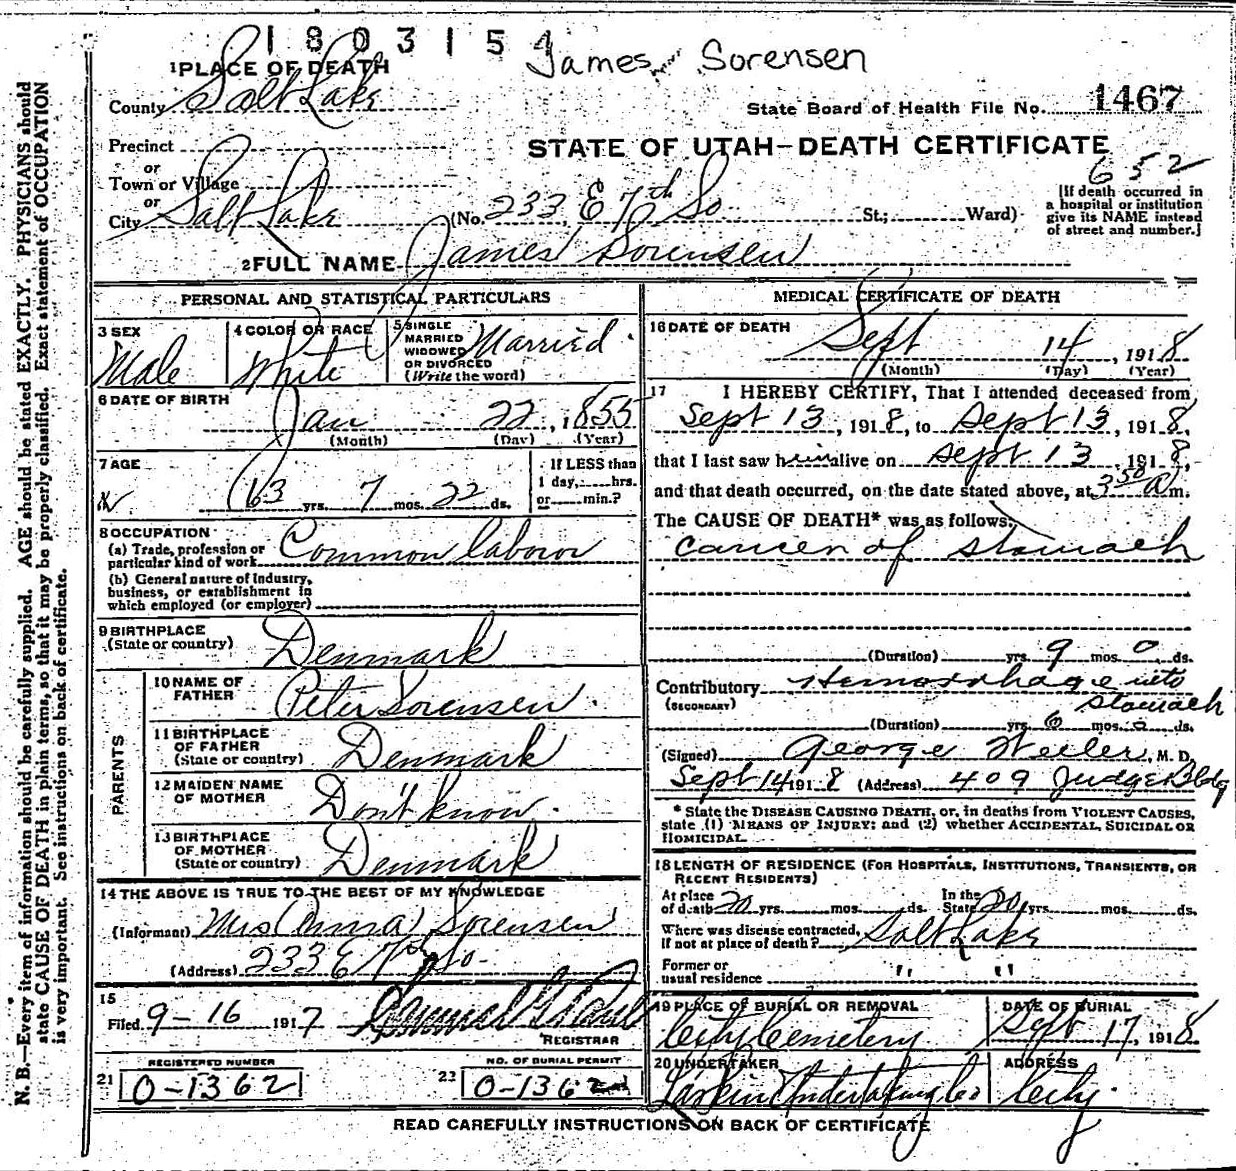 180315
James Sorensen
1 PLACE OF DEATH
County Salt Lake
State Board of Health File No. 1467
Precinct
or
Town or Village
or
City Salt Lake (No. 233 E 7th So St.; Ward)
STATE OF UTAH—DEATH CERTIFICATE
652
[If death occurred in
a hospital or institution
give its NAME instead
of street and number.]
2 FULL NAME James Sorensen
PERSONAL AND STATISTICAL PARTICULARS
3 SEX
Male
4 COLOR OR RACE
White
5 SINGLE
MARRIED
WIDOWED
OR DIVORCED
(Write the word)
Married
6 DATE OF BIRTH
Jan 22, 1855
(Month) (Day) (Year)
7 AGE
63 yrs. 7 mos. 22 ds.
If LESS than
1 day,....hrs.
or....min.?
8 OCCUPATION
(a) Trade, profession or
particular kind of work Common labour
(b) General nature of Industry,
business, or establishment in
which employed (or employer)
9 BIRTHPLACE
(State or country) Denmark
PARENTS
10 NAME OF
FATHER Peter Sorensen
11 BIRTHPLACE
OF FATHER
(State or country) Denmark
12 MAIDEN NAME
OF MOTHER Don't know.
13 BIRTHPLACE
OF MOTHER
(State or country) Denmark
14 THE ABOVE IS TRUE TO THE BEST OF MY KNOWLEDGE
(Informant) Mrs Anna Sorensen
(Address) 233 E 7th So.
15
Filed 9-16 1917
REGISTRAR
REGISTERED NUMBER
21 0-1362
NO. OF BURIAL PERMIT
22 0-1362
MEDICAL CERTIFICATE OF DEATH
16 DATE OF DEATH
Sept 14, 1918
(Month) (Day) (Year)
17 I HEREBY CERTIFY, That I attended deceased from
Sept 13, 1918, to Sept 13, 1918,
that I last saw him alive on Sept. 13 1918,
and that death occurred, on the date stated above, at 3 50 a m.
The CAUSE OF DEATH* was as follows:
Cancer of stomach
(Duration) yrs. 9 mos. 0 ds.
Contributory Hemorrhage into
(SECONDARY) stomach
(Duration) yrs. 6 mos. 0 ds.
(Signed) George Weiler, M. D.
Sept 14 1918 (Address) 409 Judge Bldg
* State the DISEASE CAUSING DEATH, or, in deaths from VIOLENT CAUSES,
state (1) MEANS OF INJURY; and (2) whether ACCIDENTAL, SUICIDAL OR
HOMICIDAL.
18 LENGTH OF RESIDENCE (FOR HOSPITALS, INSTITUTIONS, TRANSIENTS, OR
RECENT RESIDENTS)
At place
of death 20 yrs. mos. ds.
In the
State 20 yrs. mos. ds.
Where was disease contracted,
if not at place of death? Salt Lake
Former or
usual residence " "
19 PLACE OF BURIAL OR REMOVAL
City Cemetery
DATE OF BURIAL
Sept 17, 1918
20 UNDERTAKER
Larkin Undertaking Co
ADDRESS
City.
READ CAREFULLY INSTRUCTIONS ON BACK OF CERTIFICATE
N. B.—Every item of information should be carefully supplied. AGE should be stated EXACTLY. PHYSICIANS should
state CAUSE OF DEATH in plain terms, so that it may be properly classified. Exact statement of OCCUPATION
is very important. See instructions on back of certificate.